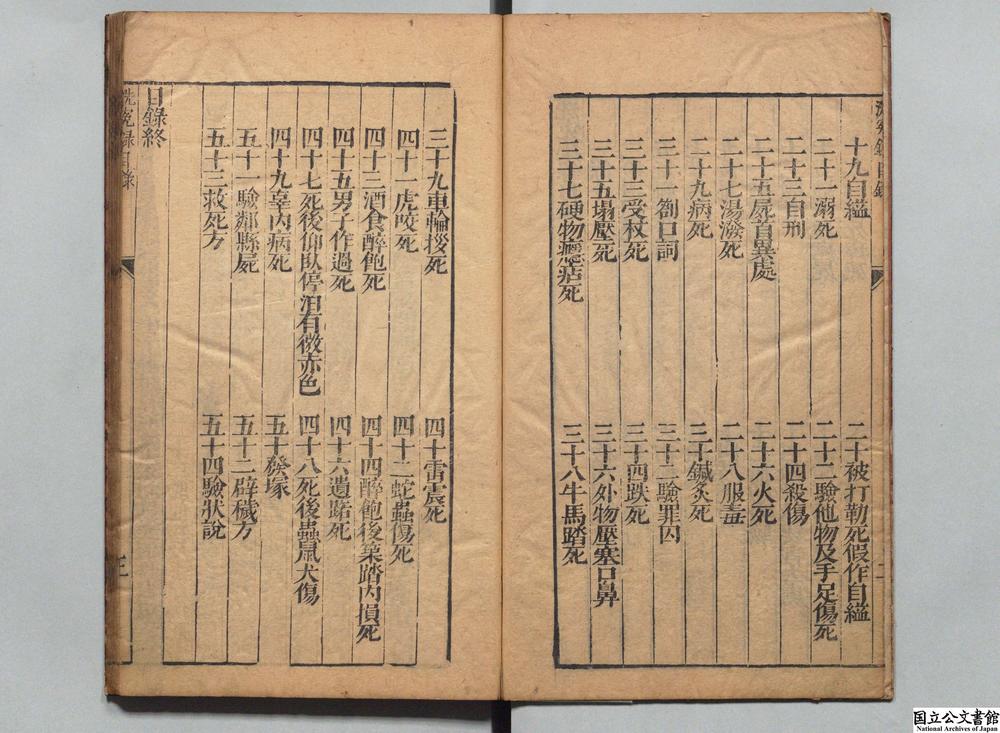 洗冤錄目錄
十九自縊
二十被打勒死假作自縊
二十一溺死
二十二驗他物及手足傷死
二十三自刑
二十四殺傷
二十五屍首異處
二十六火死
二十七湯潑死
二十八服毒
二十九病死
三十鍼灸死
三十一劄口詞
三十二驗罪囚
三十三受杖死
三十四跌死
三十五塌壓死
三十六外物壓塞口鼻
三十七硬物癮痁死
三十八牛馬踏死
二
三十九車輪拶死
四十雷震死
四十一虎咬死
四十二蛇蟲傷死
四十三酒食醉飽死
四十四醉飽後築踏內損死
四十五男子作過死
四十六遺路死
四十七死後仰臥停泊有微赤色
四十八死後蟲鼠犬傷
四十九辜內病死
五十發塚
五十一驗鄰縣屍
五十二辟穢方
五十三救死方
五十四驗狀說
目錄終
洗冤錄目錄
三
国立公文書館
National Archives of Japan